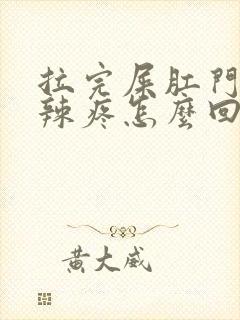 拉完屎肛門
辣疼怎麼回
黃大威